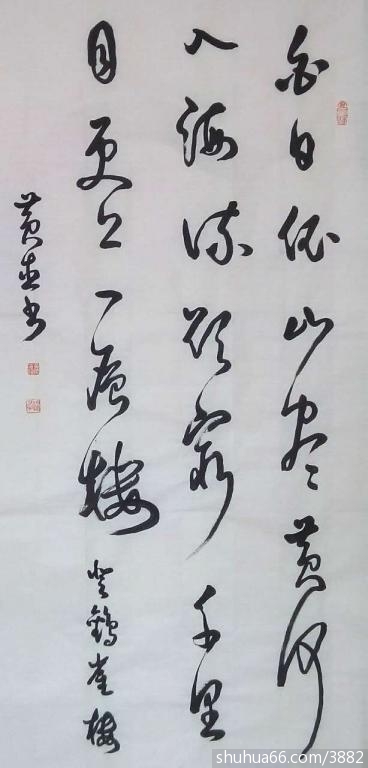 白日依山尽黄河
入海流欲穷千里
目更上一层楼
登鹳雀楼
黄
书
shuhua66.com/3882